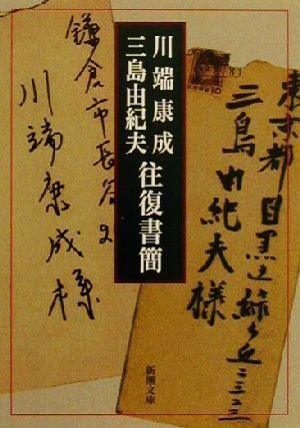 川端康成
三島由紀夫
往復書簡
東京都目黒区緑ヶ丘二三二三
三島由紀夫様
鎌倉市長谷
川端康成様
新潮文庫